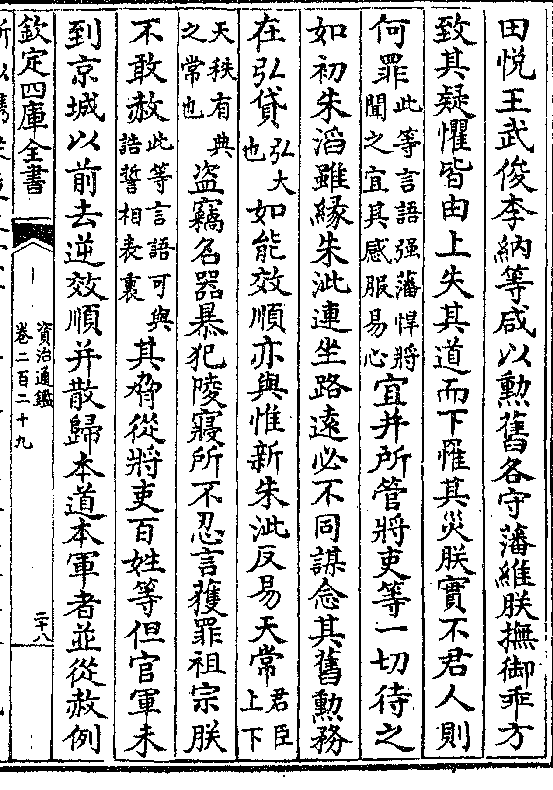 田悦王武俊李納等咸以勲舊各守藩維朕撫御乖方
致其疑懼皆由上失其道而下罹其災朕實不君人則
何罪此等言語强藩悍將聞之宜其感服易心宜并所管將吏等一切待之
如初朱滔雖緣朱泚連坐路遠必不同謀念其舊勲務
在弘貸弘大也如能效順亦與惟新朱泚反易天常君臣上下
天秩有典之常也盜竊名器暴犯陵寢所不忍言獲罪祖宗朕
不敢赦此等言語可與誥誓相表裏其脅從將吏百姓等但官軍未
到京城以前去逆效順并散歸本道本軍者並從赦例
欽定四庫全書
資治通鑑
卷二百二十九
二十八